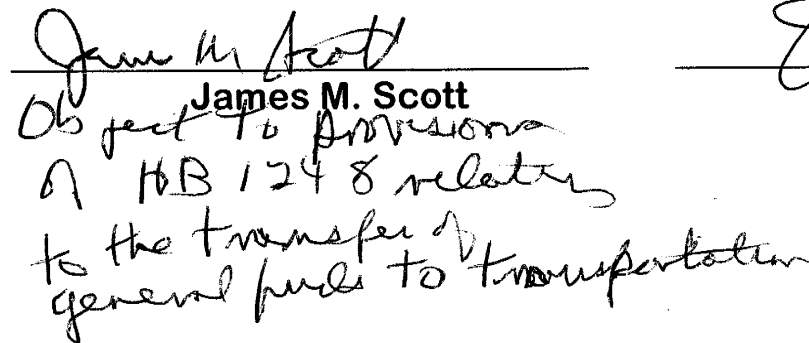 James M Scott
James M. Scott
Object to provisions
of HB 1248 relating
to the transfer of
general funds to transportation